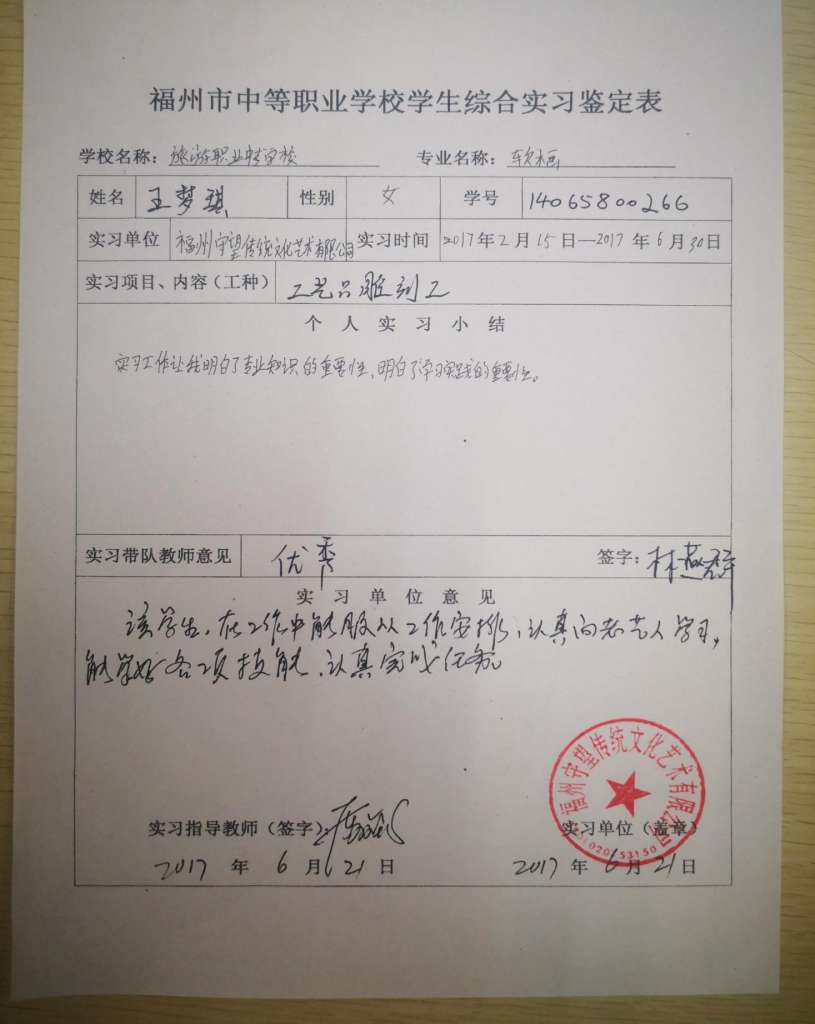 福州市中等职业学校学生综合实习鉴定表
学校名称：旅游职业中专学校 专业名称：软木画
姓名 王梦琪 性别 女 学号 14065800266
实习单位 福州守望传统文化艺术有限公司 实习时间 2017年2月15日—2017年6月30日
实习项目、内容（工种） 工艺品雕刻工
个人实习小结
实习工作让我明白了专业知识的重要性、明白了学习实践的重要性。
实习带队教师意见 优秀 签字：林
实习单位意见
该学生，在工作中能服从工作安排，认真向老艺人学习，
能学好各项技能，认真完成任务
福州守望传统文化艺术有限公司
实习指导教师（签字）： 实习单位（盖章）
2017年6月21日 2017年6月21日